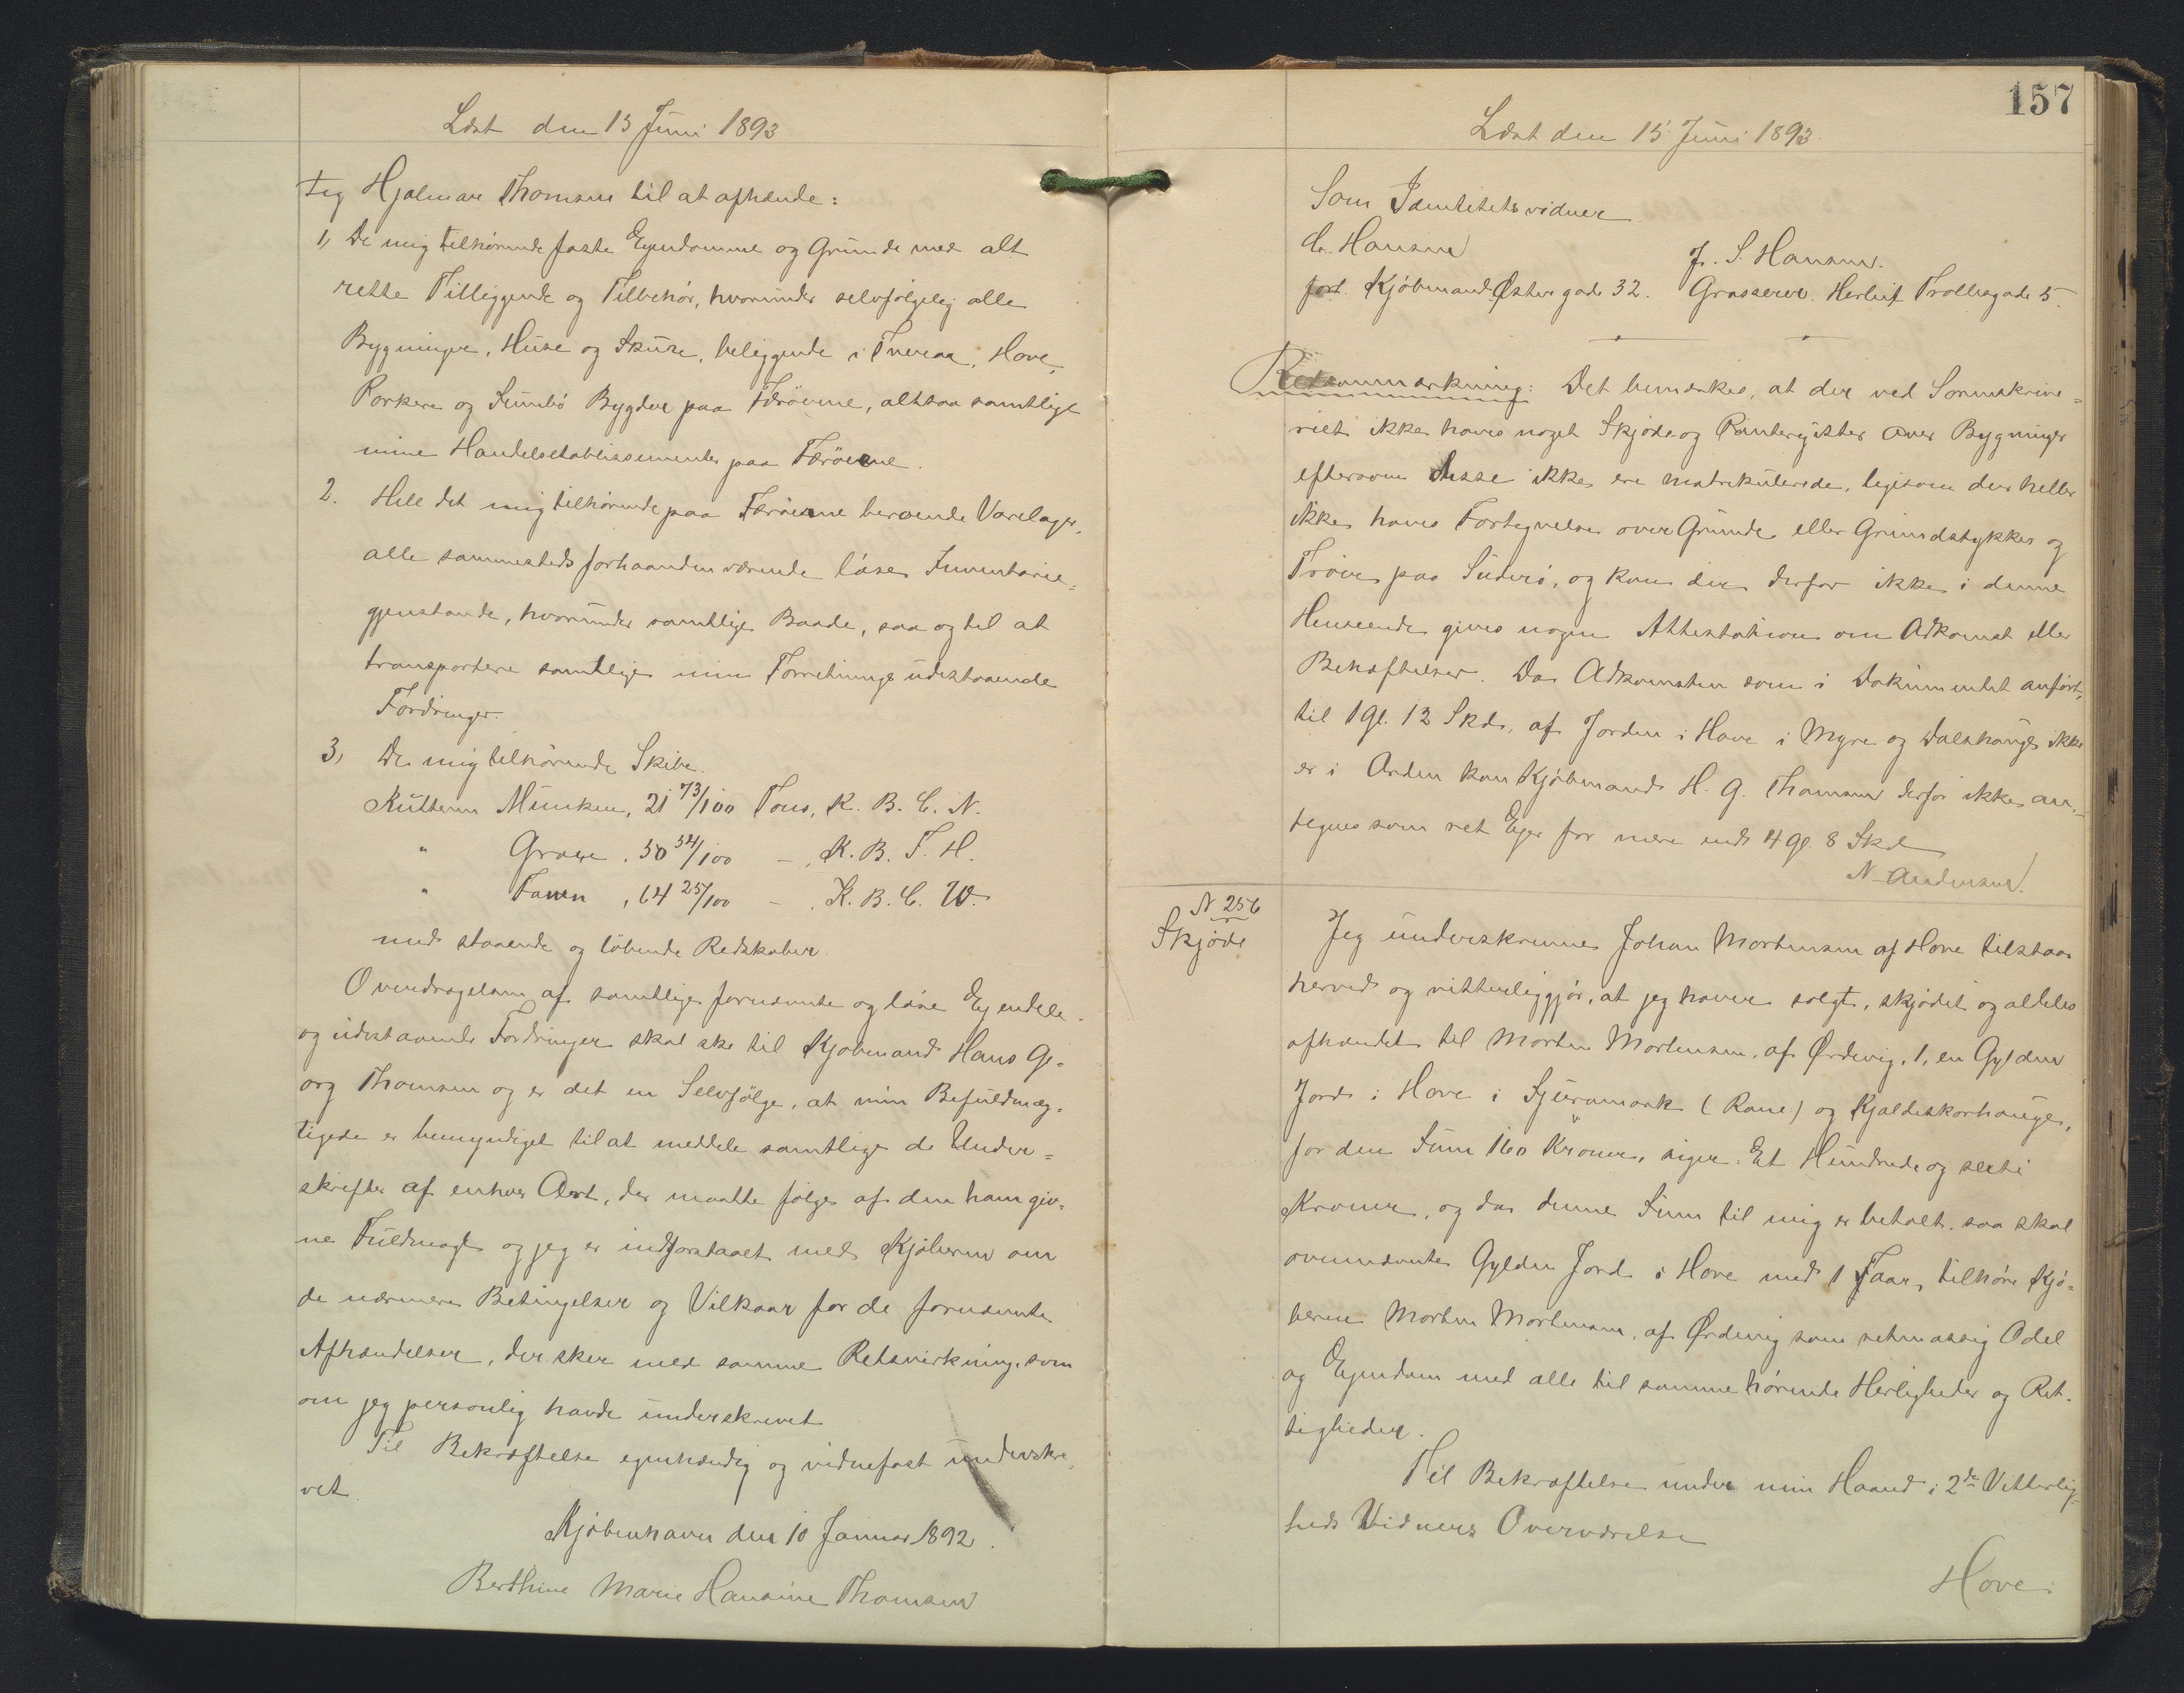 Læst den 15 Juni 1893
teg Hjalmar Thomsen til at afhænde:
1, De mig tilhørende faste Ejendomme og Grunde med alt
rette Tilliggende og Tilbehör, hvorunder selvfølgelig alle
Bygninger, Huse og Skure, beliggende i Tveraa, Hove,
Porkere og Sumbö Bygder paa Færöerne, altsaa samtlige
mine Handelsetablissementer paa Færöerne.
2. Hele det mig tilhörende paa Færöerne beroende Varelager,
alle sammesteds forhaanden værende löse Inventarie-
gjenstande, hvorunder samtlige Baade, saa og til at
transportere samtlige min Forretnings udestaaende
Fordringer.
3, De mig tilhörende Skibe.
Kutteren Munken, 21 73/100 Tons, K. B. C. N.
" Grace, 50 54/100 - , K. B. T. H.
" Faven, 64 25/100 - , K. B. C. W.
med staaende og löbende Redskaber.
Overdragelsen af samtlige fornævnte og löse Ejendele
og udestaaende Fordringer skal ske til Kjøbmand Hans Ge-
org Thomsen og er det en Selvfölge, at min Befuldmæg-
tigede er bemyndiget til at meddele samtlige de Under=
skrifter af enhver Art, der maatte fölge af den ham giv-
ne Fuldmagt og jeg er indforstaaet med Kjöberen om
de nærmere Betingelser og Vilkaar for de fornævnte
Afhændelser, der sker med samme Retsvirkning, som
om jeg personlig havde underskrevet
Til Bekræftelse egenhændig og vidnefast underskre-
vet.
Kjöbenhavn den 10 Januar 1892.
Berthine Marie Hansine Thomsen
157
Læst den 15 Juni 1893.
Som Identitetsvidner
C. Hansen J. S. Hansen.
fort. Kjöbmand Østergade 32. Grosserer. Herluf Trollesgade 5.
Retsanmærkning: Det bemærkes, at der ved Sorenskrive=
riet ikke haves noget Skjöde- og Panteregister over Bygninger
eftersom disse ikke ere matrikulerede, ligesom der heller
ikke haves Fortegnelse over Grunde eller Grundstykker og
Tröer paa Suderö, og kan der derfor ikke i denne
Henseende gives nogen Attestation om Adkomst eller
Behæftelser. Da Adkomsten som i Dokumentet anfört,
til 1 Gl. 12 Skd. af Jorden i Hove i Myre og Dalshauge ikke
er i Orden kan Kjöbmand H. G. Thomsen derfor ikke an-
tegnes som ret Ejer for mere end 4 Gl. 8 Skd
N. Andersen.
N 256
Skjöde
Jeg underskrevne Johan Mortensen af Hove tilstaar
herved og vitterliggjör, at jeg haver solgt, skjödet og aldeles
afhændet til Morten Mortensen, af Ørdevig, 1, en Gylden
Jord i Hove i Sjuramork (Rane) og Kjaldeskorhauge,
for den Sum 160 Kroner, siger. Et Hundrede og sexti
Kroner, og da denne Sum til mig er betalt, saa skal
ovennævnte Gylden Jord i Hove med 1 Faar, tilhöre Kjö-
beren Morten Mortensen, af Ørdevig som retmæssig Odel
og Ejendom med alle til samme hörende Herligheder og Ret-
tigheder.
Til Bekræftelse under min Haand i 2de Vitterlig-
heds Vidners Overværelse
Hove